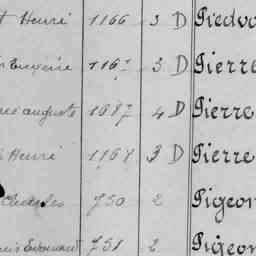 Henri 1166 3 D Piedvo
Eugène 1167 3 D Pierre
auguste 1687 4 D Pierre
Henri 1168 3 D Pierre
Charles 750 2 Pigeon
Edouard 751 2 Pigeon